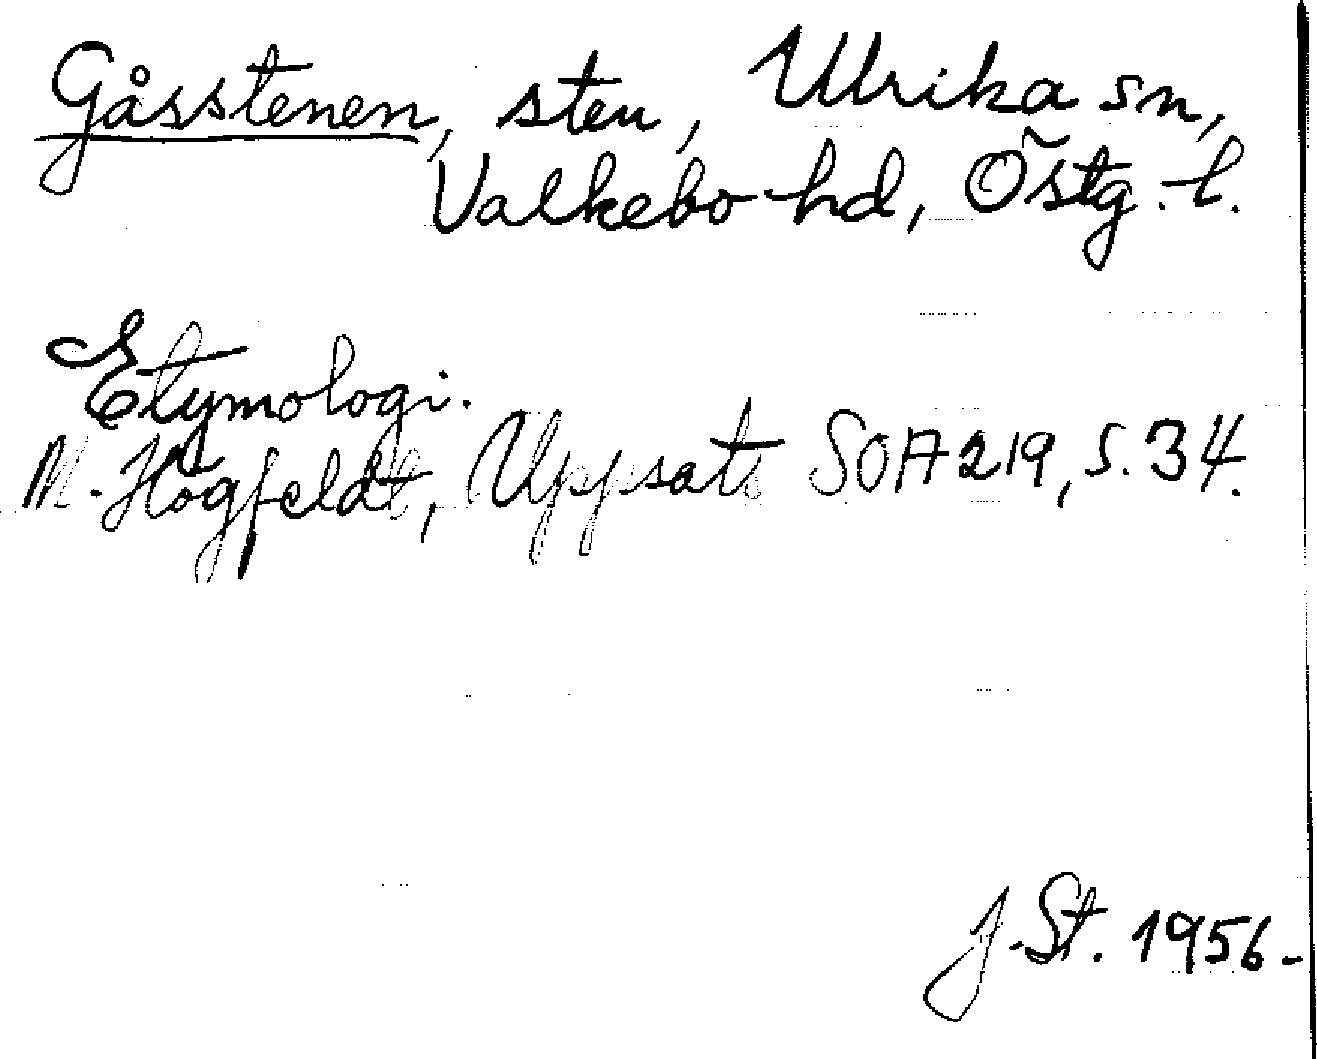 Gåsstenen, sten, Ulrika sn,
Valkebo hd, Östg. l.
Etymologi.
M. Högfeldt, Uppsats SOA 219, s. 34.
J. St. 1956.